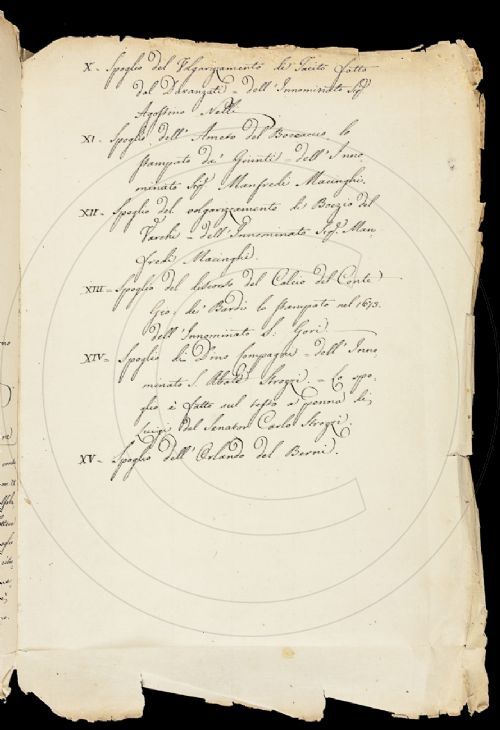 X - Spoglio del Volgarizzamento di Tacito fatto
dal Davanzati - dell'Innominato Sig.r
Agostino Nelli
XI - Spoglio dell'Ameto del Boccaccio lo
stampato da' Giunti - dell'Inno-
minato Sig.r Manfredi Macinghi
XII - Spoglio del volgarizzamento di Boezio del
Varchi - dell'Innominato Sig.r Man
fredi Macinghi.
XIII - Spoglio del discorso del Calcio del Conte
Gio. de' Bardi lo stampato nel 1673.
dell'Innominato S. Gori.
XIV - Spoglio di Dino Compagni - dell'Inno
minato S. Abate Strozzi. - Lo spo-
glio è fatto sul testo a penna di
Luigi del Senator Carlo Strozzi.
XV - Spoglio dell'Orlando del Berni.